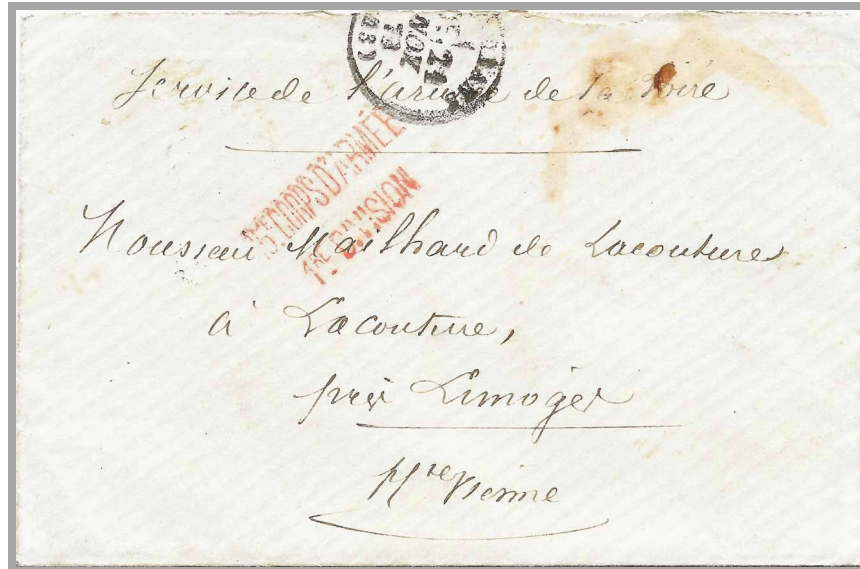 NOV
73
Service de l'armée de la Loire
CORPS D'ARMÉE
1RE DIVISION
Monsieur Mailhard de Lacouture
à Lacouture,
près Limoges
Hte Vienne